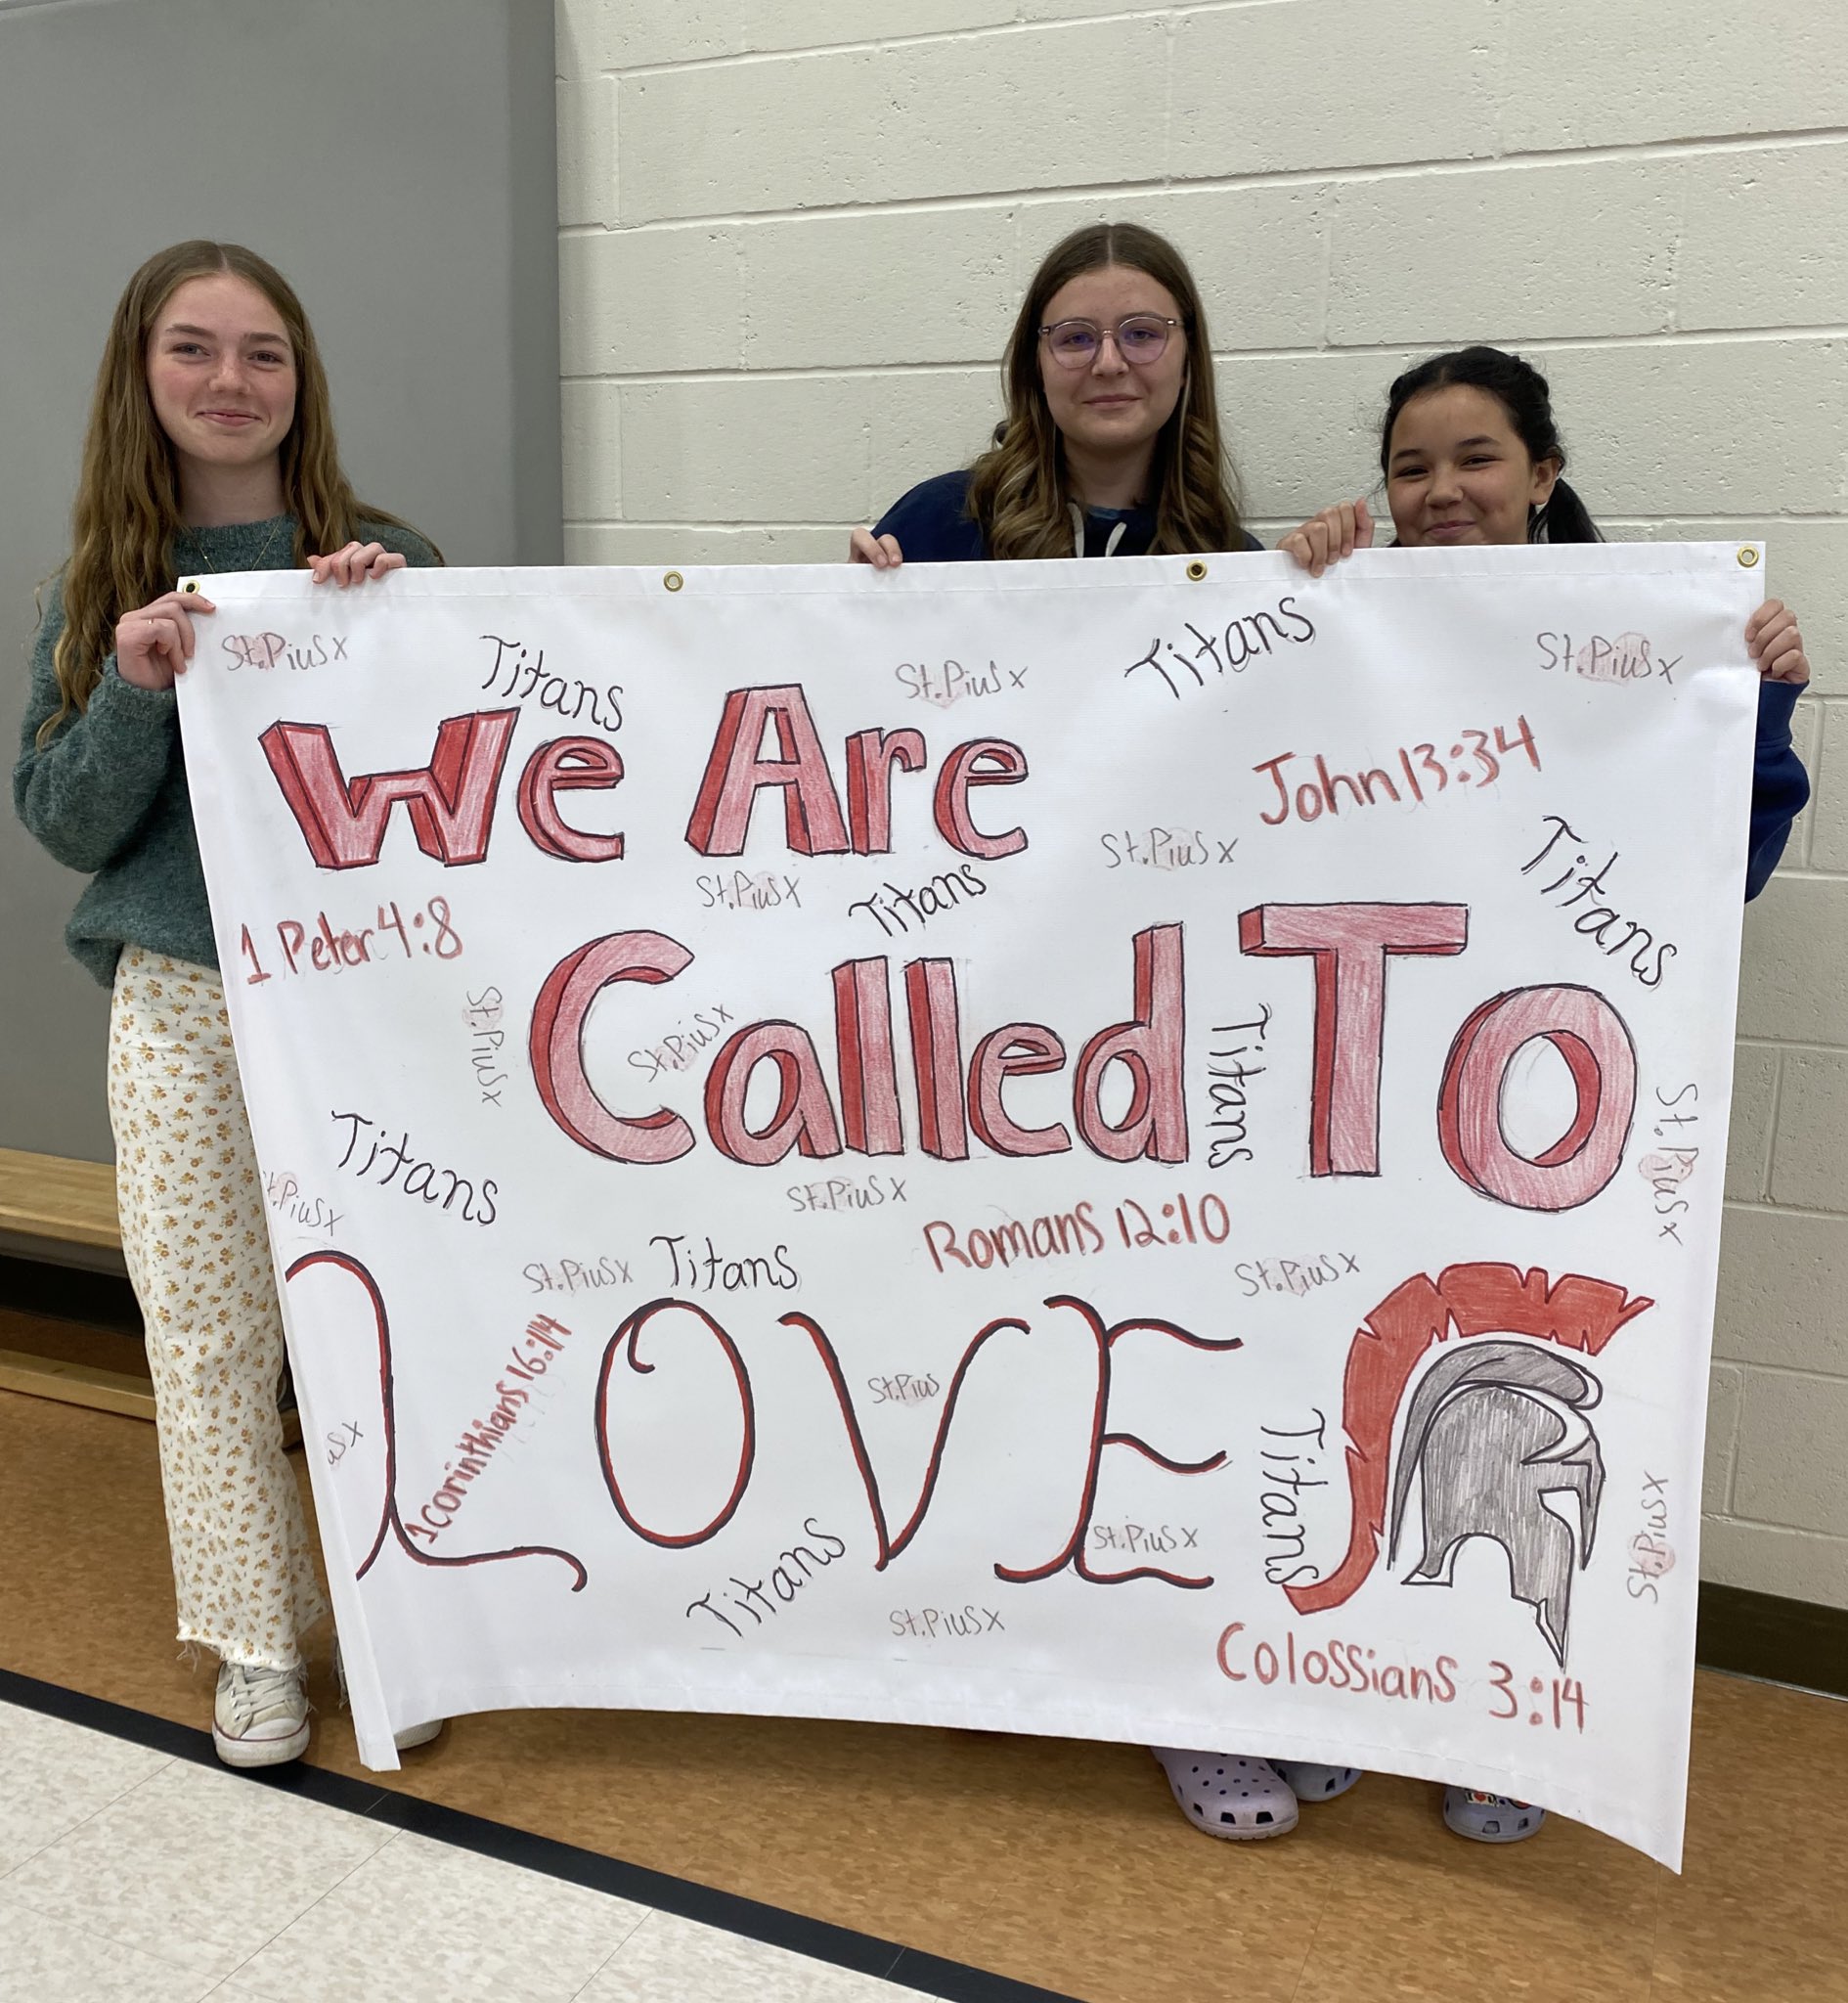 St.Pius x
Titans
St.Pius x
Titans
St.Pius x
We Are
John 13:34
St.Pius x
Titans
St.Pius x
Titans
1 Peter 4:8
St.Pius x
St.Pius x
Called To
Titans
St.Pius x
Titans
St.Pius x
St.Pius x
Romans 12:10
St.Pius x
Titans
St.Pius x
LOVE
1 Corinthians 16:14
St.Pius
Titans
St.Pius x
St.Pius x
Titans
St.Pius x
Colossians 3:14